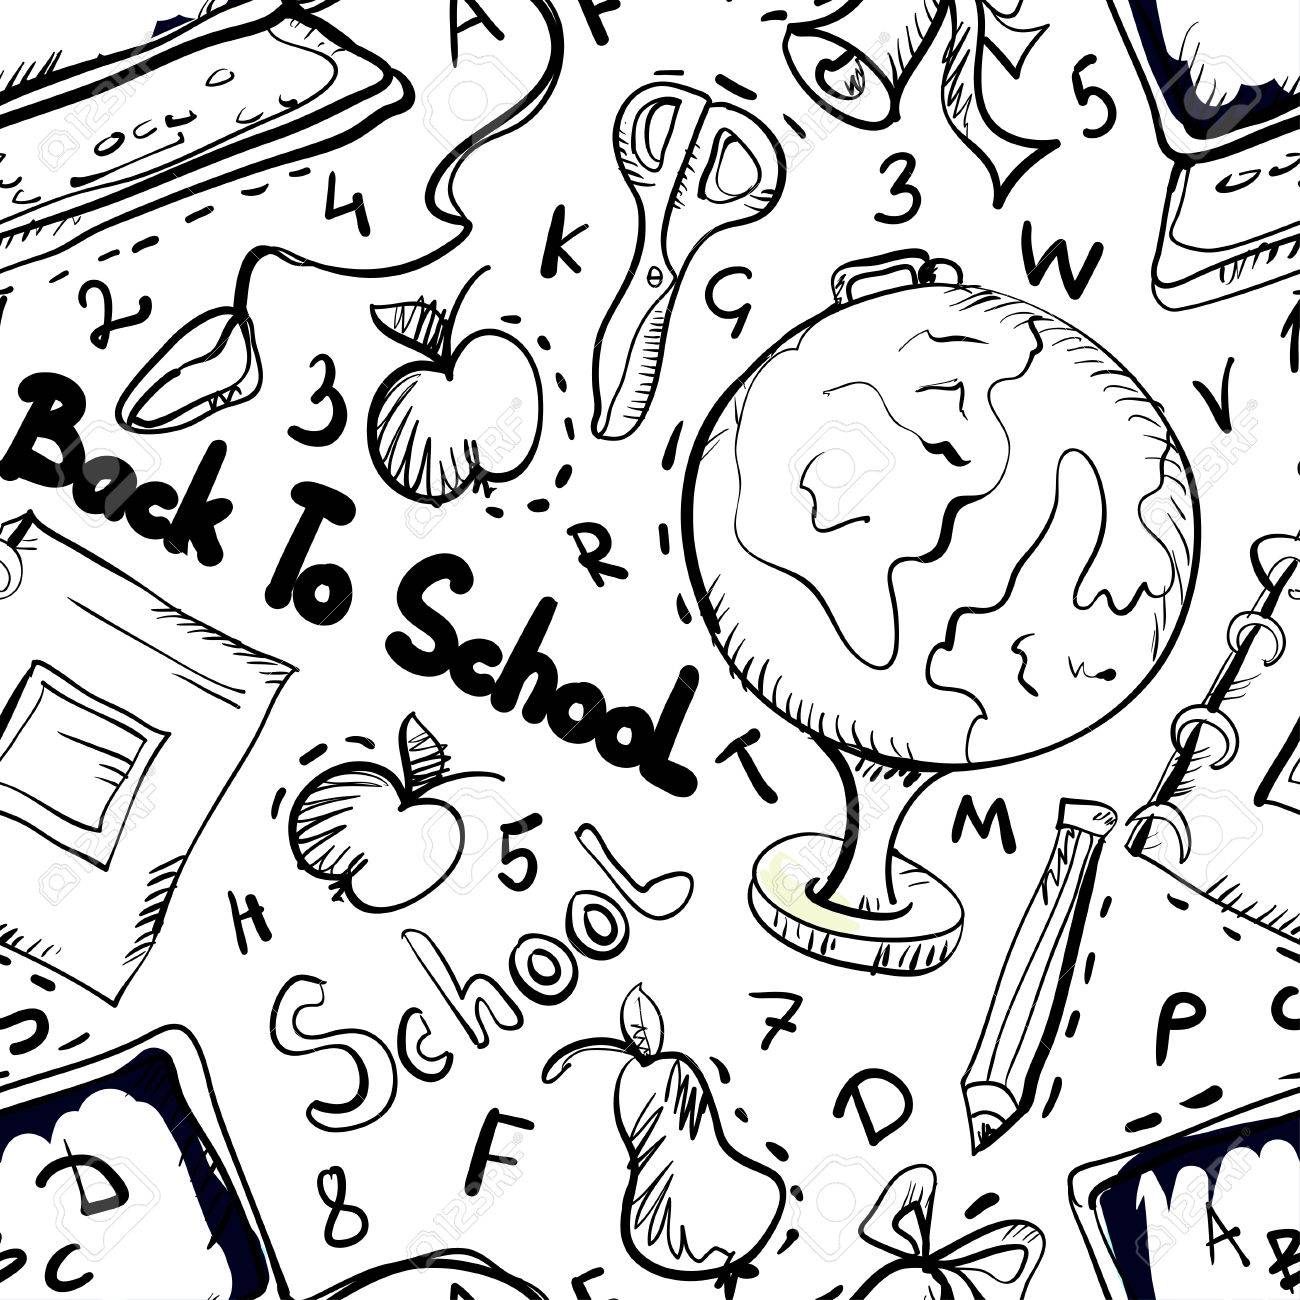 A
F
5
4
3
K
W
2
G
3
V
Back To School
R
T
M
5
H
School
7
P
C
D
F
D
8
A
B
C